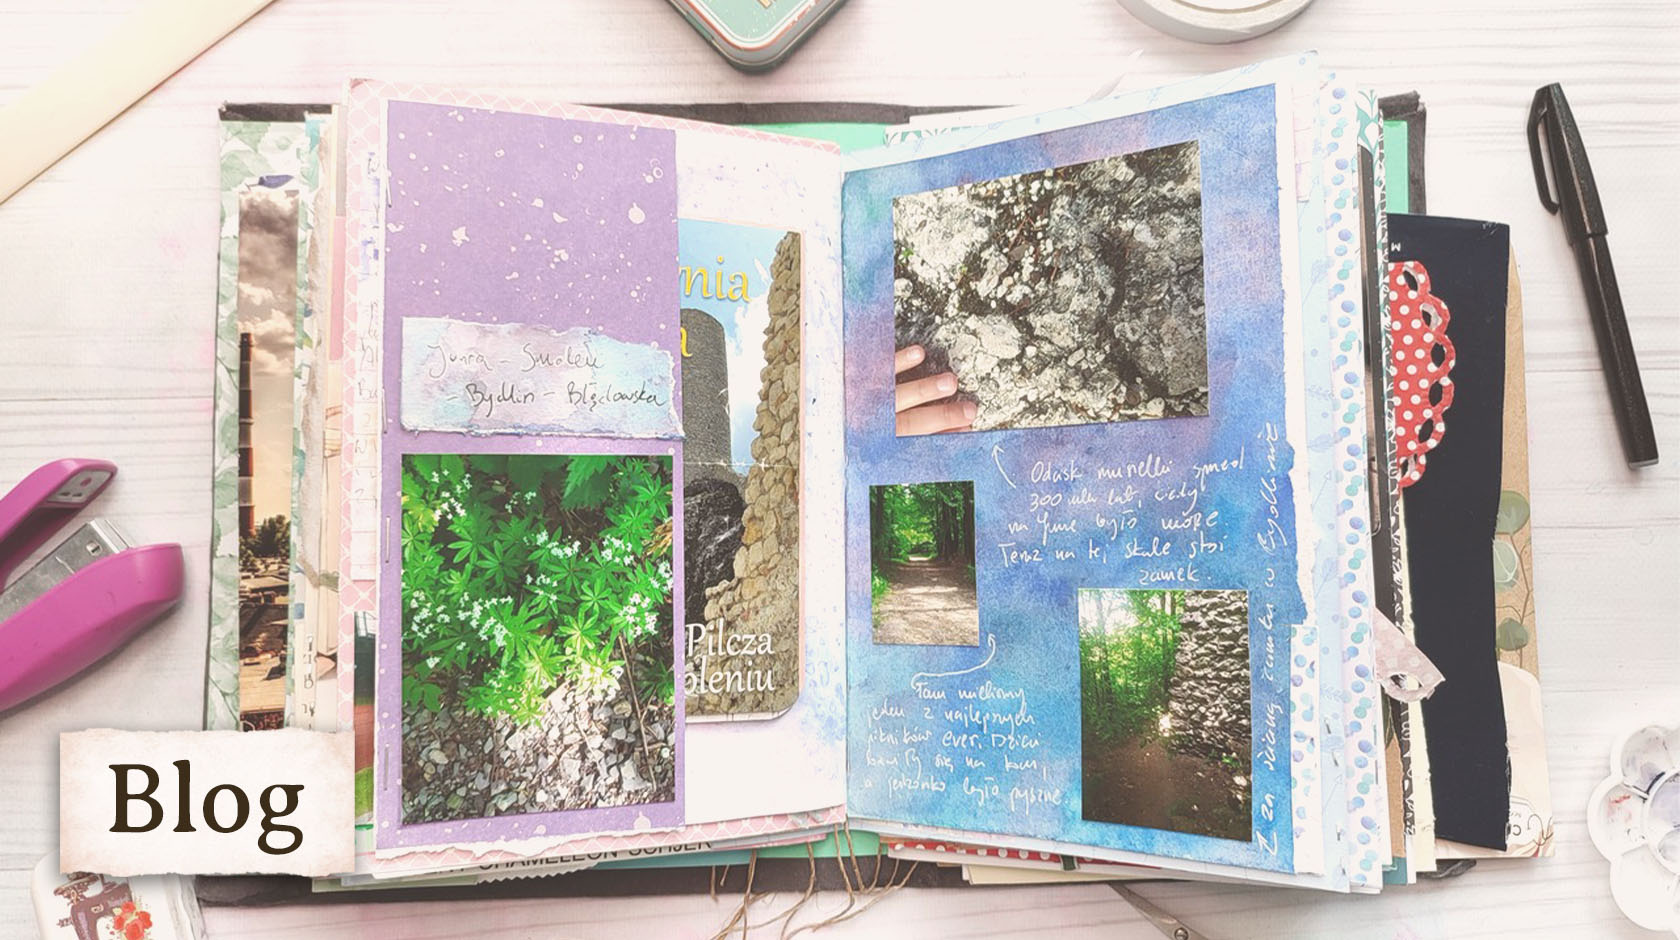 Jura - Smoleń
- Bydlin - Błędowska
nia
a
Pilcza
oleniu
Odcisk muszelki sprzed
300 mln lat, kiedy
na Jurze było morze.
Teraz na tej skale stoi
zamek.
Tam mieliśmy
jeden z najlepszych
pikników ever. Dzieci
bawiły się na kocu,
a jedzonko było pyszne
Z za ścianą zamku w Bydlinie
Blog
CHAMELEON SCHJER